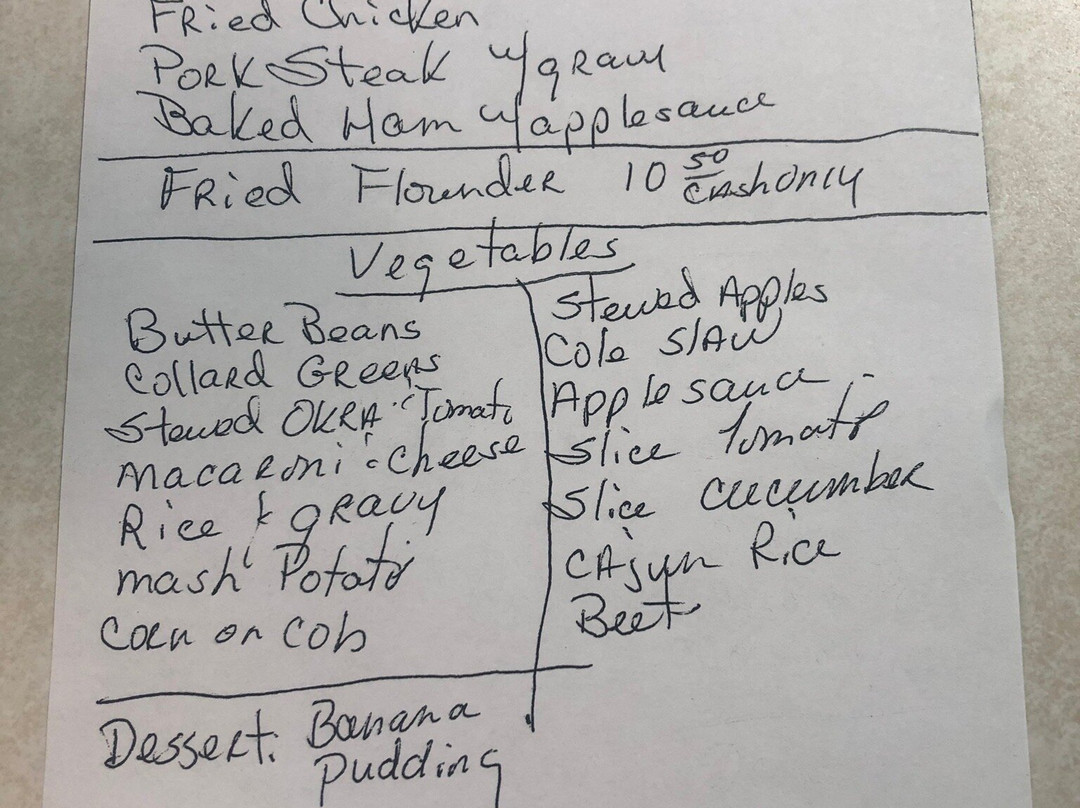 Fried Chicken
Pork Steak w/ gravy
Baked Ham w/ applesauce
Fried Flounder 10 50 Cash only
Vegetables
Butter Beans
Collard Greens
Stewed OKRA & Tomato
Macaroni & Cheese
Rice & gravy
mash Potato
Corn on Cob
Stewed Apples
Cole SLAW
Apple sauce
Slice Tomato
Slice cucumber
CAjun Rice
Beet
Dessert: Banana
Pudding